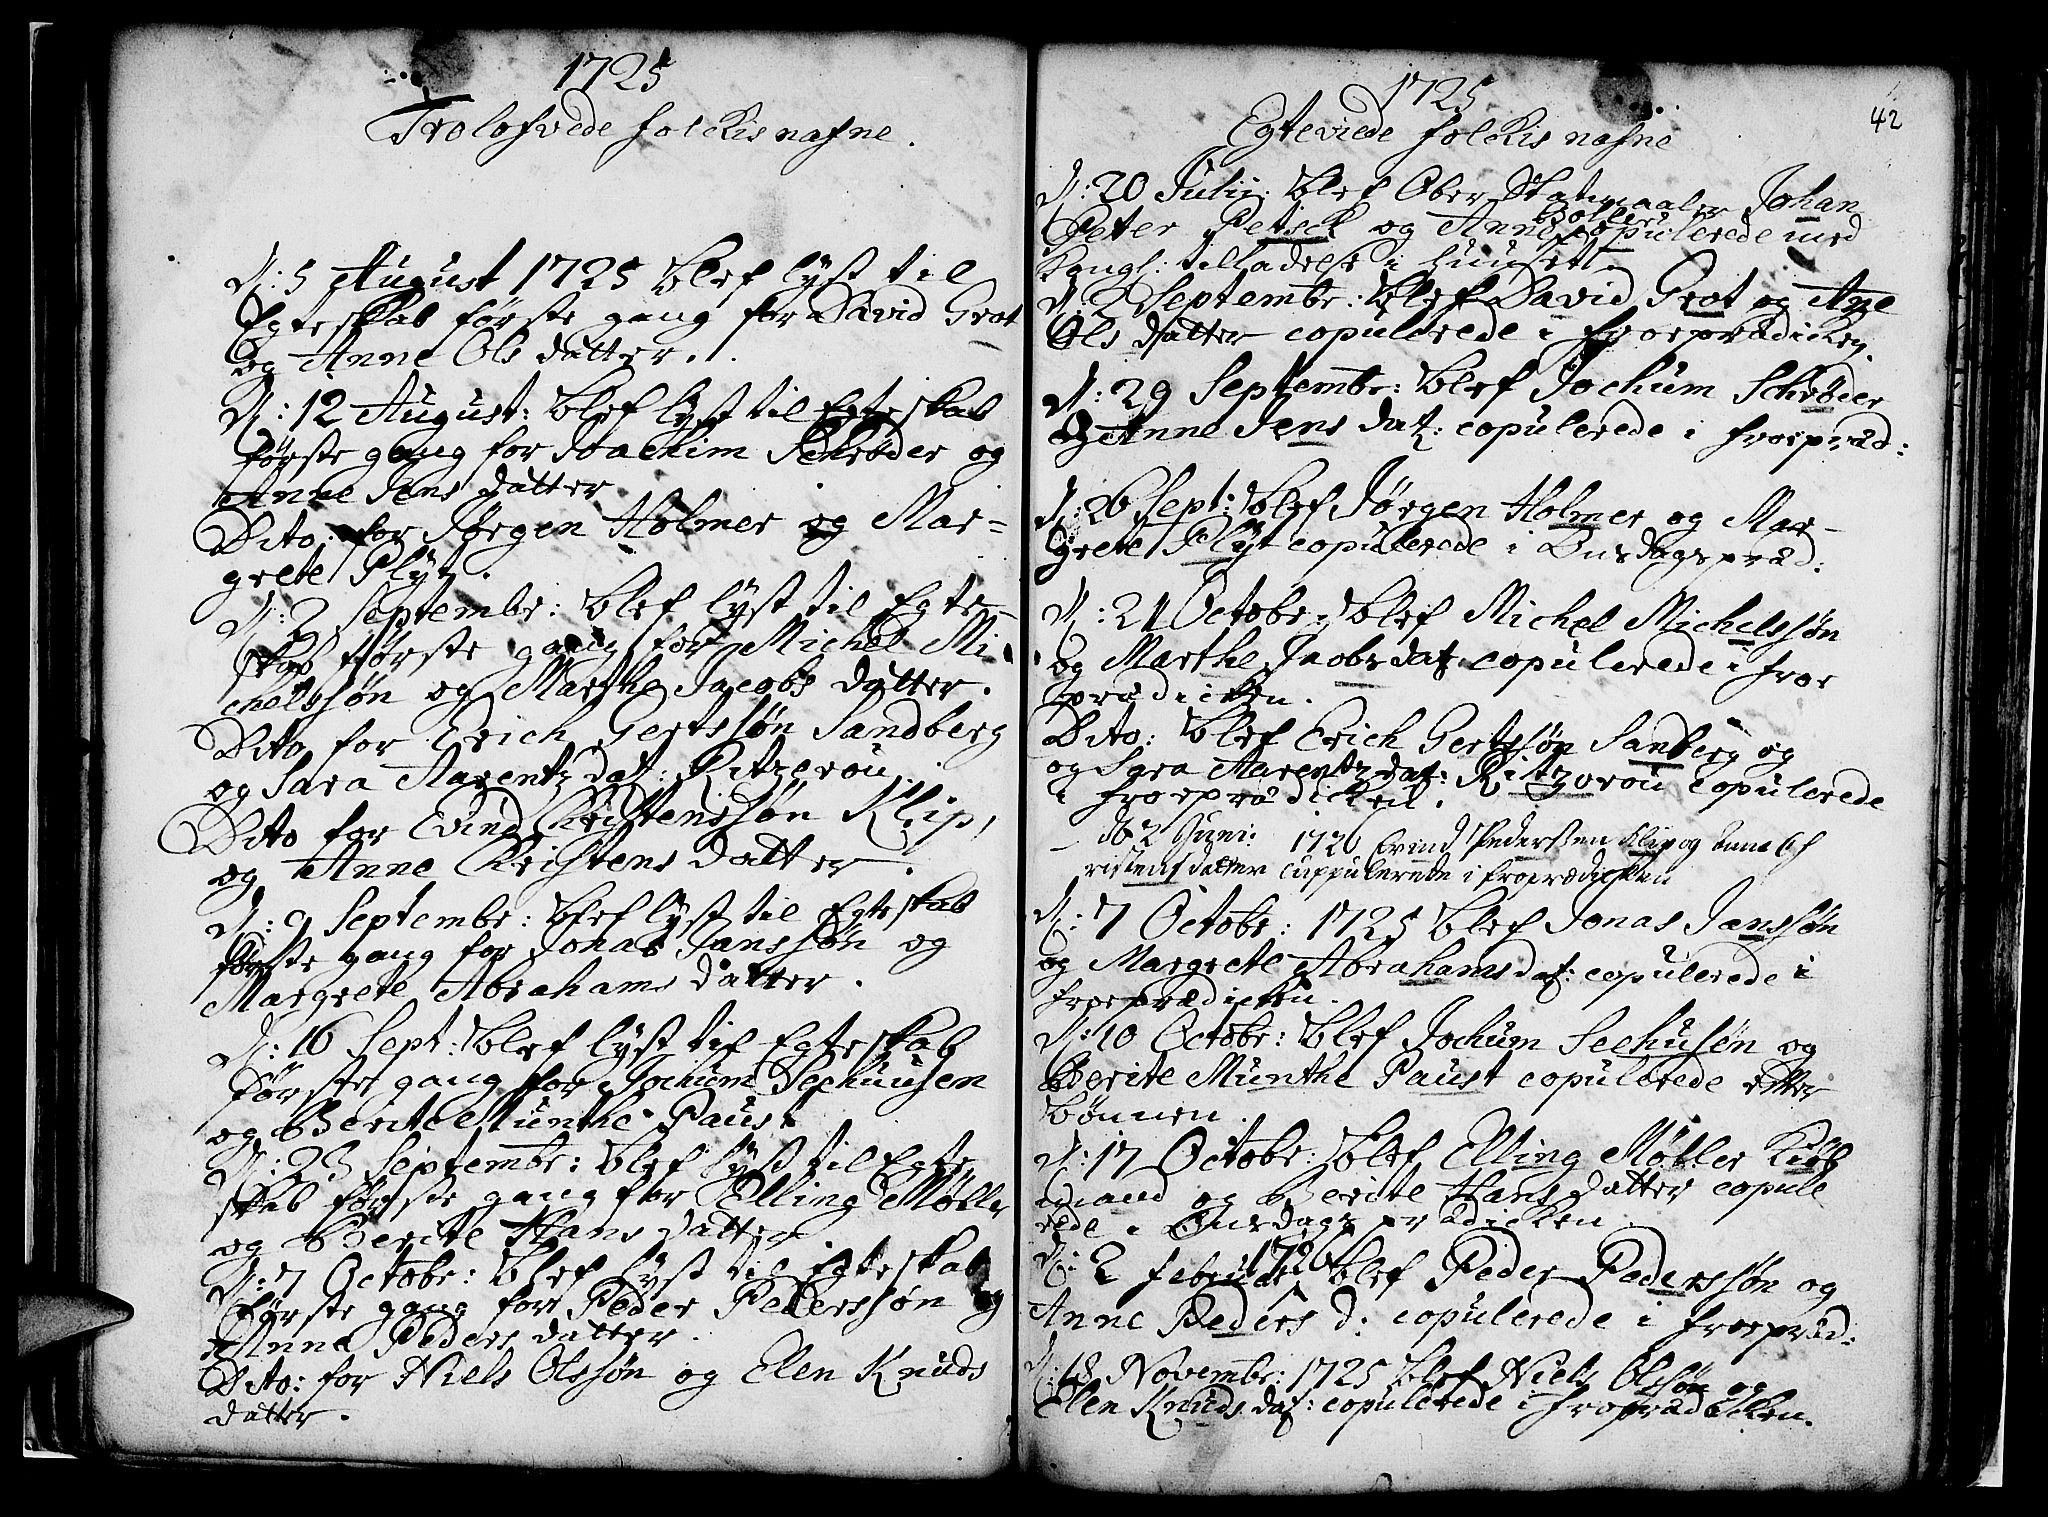 1725
Trolofvede folckis nafne.
D: 5 August 1725 blef lyst til
Egteskab første gang for David Grot
og Anne Ols datter.
D: 12 August: blef lyst til Egteskab
første gang for Joachim Schrøder og
Anne Jens datter
Dito: for Jørgen Holmer og Mar=
grete Plyt.
D: 2 Septembr: blef lyst til Egte-
skab første gang for Michel Mi
chelssøn og Marthe Jacobs datter.
Dito for Erich Gertssøn Sandberg
og Sara Aarentz dat: Ritzerou.
Dito for Evind Christenssøn Klip,
og Anne Christens datter.
D: 9 Septembr: blef lyst til Egteskab
første gang for Jonas Janssøn og
Margrete Abrahams datter.
D: 16 Sept: blef lyst til Egteskab
første gang for Jochum Seehuusen
og Berite Munthe Paust
D: 23 Septembr: blef lyst til Egte
skab første gang for Elling Møller
og Berite Hans datter
D: 7 Octobr: blef lyst til Egteskab
første gang for Peder Pederssøn og
Anne Peders datter.
Dito: for Niels Olssøn og Elen Knuds
datter.
42
1725
Egteviede folckis nafne
D: 20 Julii: blef Ober Johan
Peter Petsch og Anne copulerede med
Kongl: tilladelse i huuset
D: 2 Septembr: blef David Grot og Ane
Ols datter copulerede i froeprædicken.
D: 29 Septembr: blef Jochum Schrøder
og Anne Jens dat: copulerede i froepræd:
D: 26 Sept: blef Jørgen Holmer og Mar-
grete Plyt copulerede i Onsdagspræd:
D: 21 Octobr: blef Michel Michelssøn
og Marthe Jacobs dat: copulerede i froe
prædicken.
Dito: blef Erich Gertssøn Sanberg og
og Sara Aarentz dat: Ritzorou copulerede
i froeprædicken.
2 Juni: 1726 Evind Pederssen Klip og Anna Ch
ristens datter cuppulerede i froprædicken
D: 7 Octobr: 1725 blef Jonas Janssøn
og Margrete Abrahams dat: copulerede i
froeprædicken.
D: 10 Octobr: blef Jochum Seehusøn og
Berite Munthe Paust copulerede efter
bønnen.
D: 17 Octobr: blef Elling Møller
mand og Berite Hans datter copule
rede i Onsdags prædicken
1726
D: 2 februar blef Peder Pederssøn og
Anne Peders d: copulerede i froepræd:
D: 18 Novembr: 1725 blef Niels Olssøn og
Elen Knuds dat: copulerede i froprædicken.